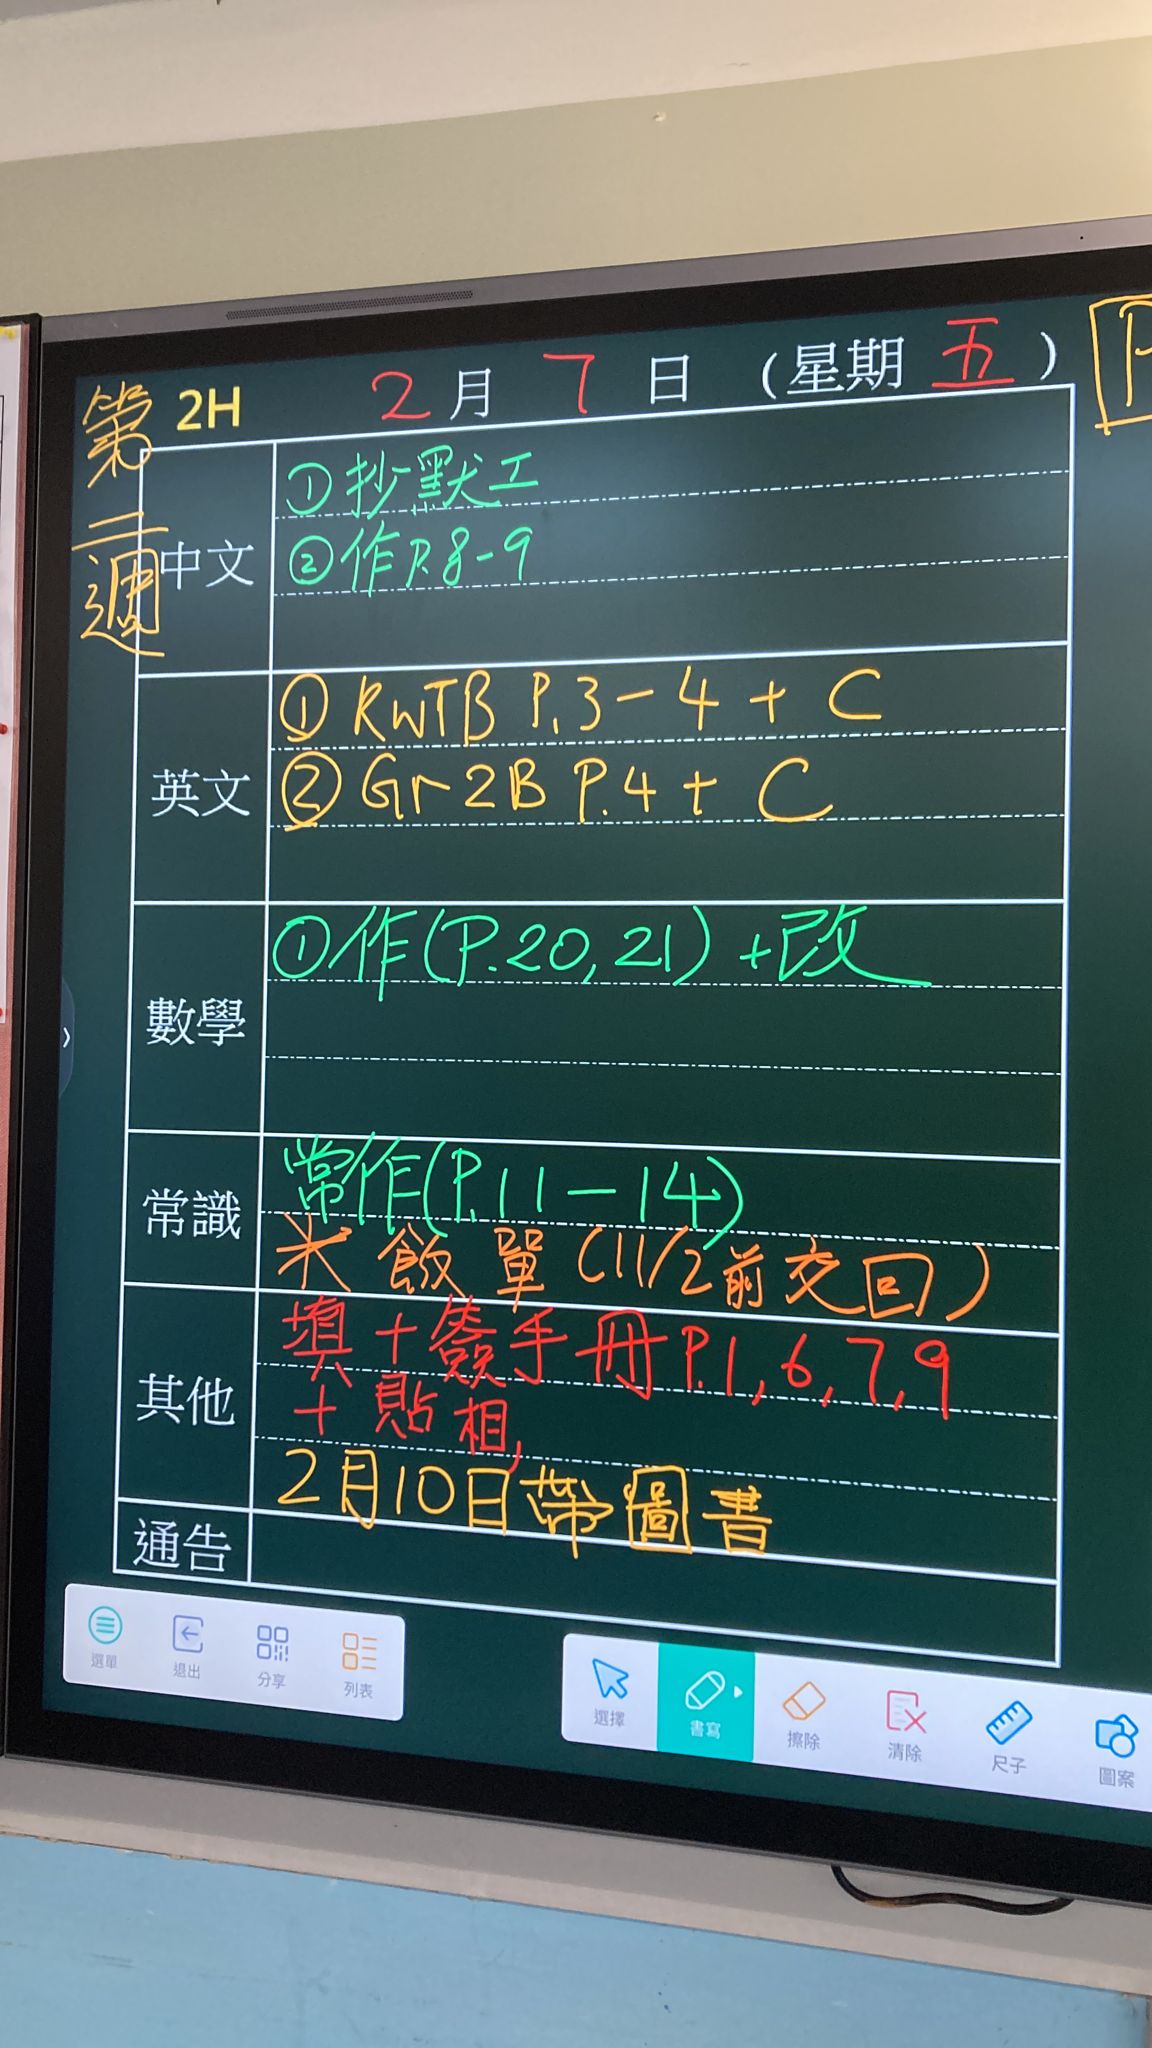 第二週
2H 2月7日（星期五）
中文
①抄默工
②作P.8-9
英文
① RWTB P.3-4 + C
② Gr2B P.4 + C
數學
①作(P.20,21) +改
常識
常作(P.11-14)
* 飯單 (11/2前交回)
其他
填+簽手冊P.1,6,7,9
+貼相,
2月10日帶圖書
通告
選單 退出 分享 列表 選擇 書寫 擦除 清除 尺子 圖案